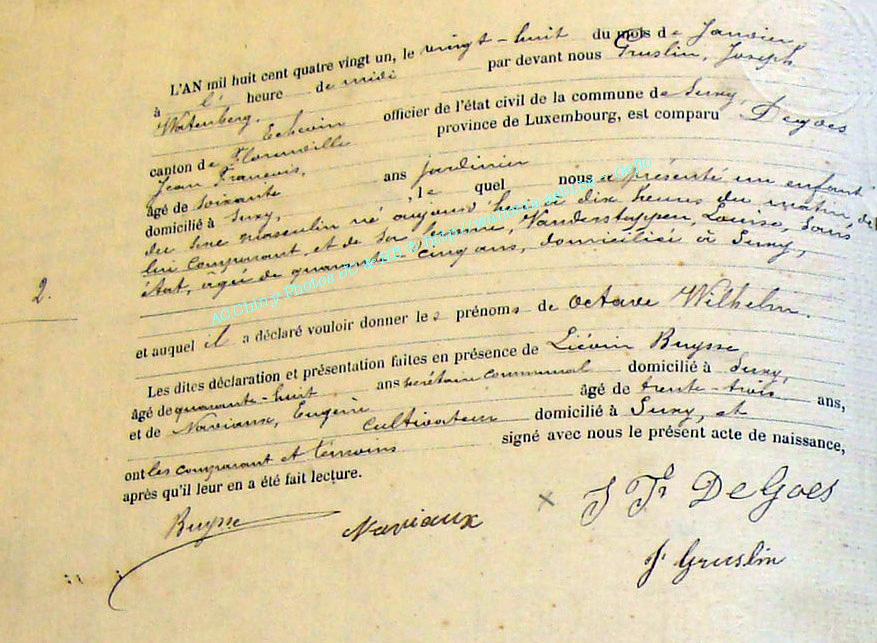 L'AN mil huit cent quatre vingt un, le vingt-huit du mois de Janvier
à l' heure de midi par devant nous Gruslin, Joseph
Watenberg, Echevin officier de l'état civil de la commune de Suxy,
canton de Florenville province de Luxembourg, est comparu Degoes
Jean François,
âgé de soixante ans jardinier
domicilié à Suxy, le quel nous a présenté un enfant
du sexe masculin né aujourd'hui à dix heures du matin, de
lui comparant, et de son femme, Vanderstappen, Louise, Sans
état, âgée de quarante cinq ans, domiciliée à Suxy,
2.
et auquel il a déclaré vouloir donner les prénoms de Octave Wilhelm.
Les dites déclaration et présentation faites en présence de Liévin Buysse
âgé de quarante-huit ans secrétaire communal domicilié à Suxy,
et de Naviaux, Eugène âgé de trente-trois ans,
cultivateur domicilié à Suxy, et
ont les comparant et témoins signé avec nous le présent acte de naissance,
après qu'il leur en a été fait lecture.
Buysse Naviaux J Fs DeGoes
J. Gruslin